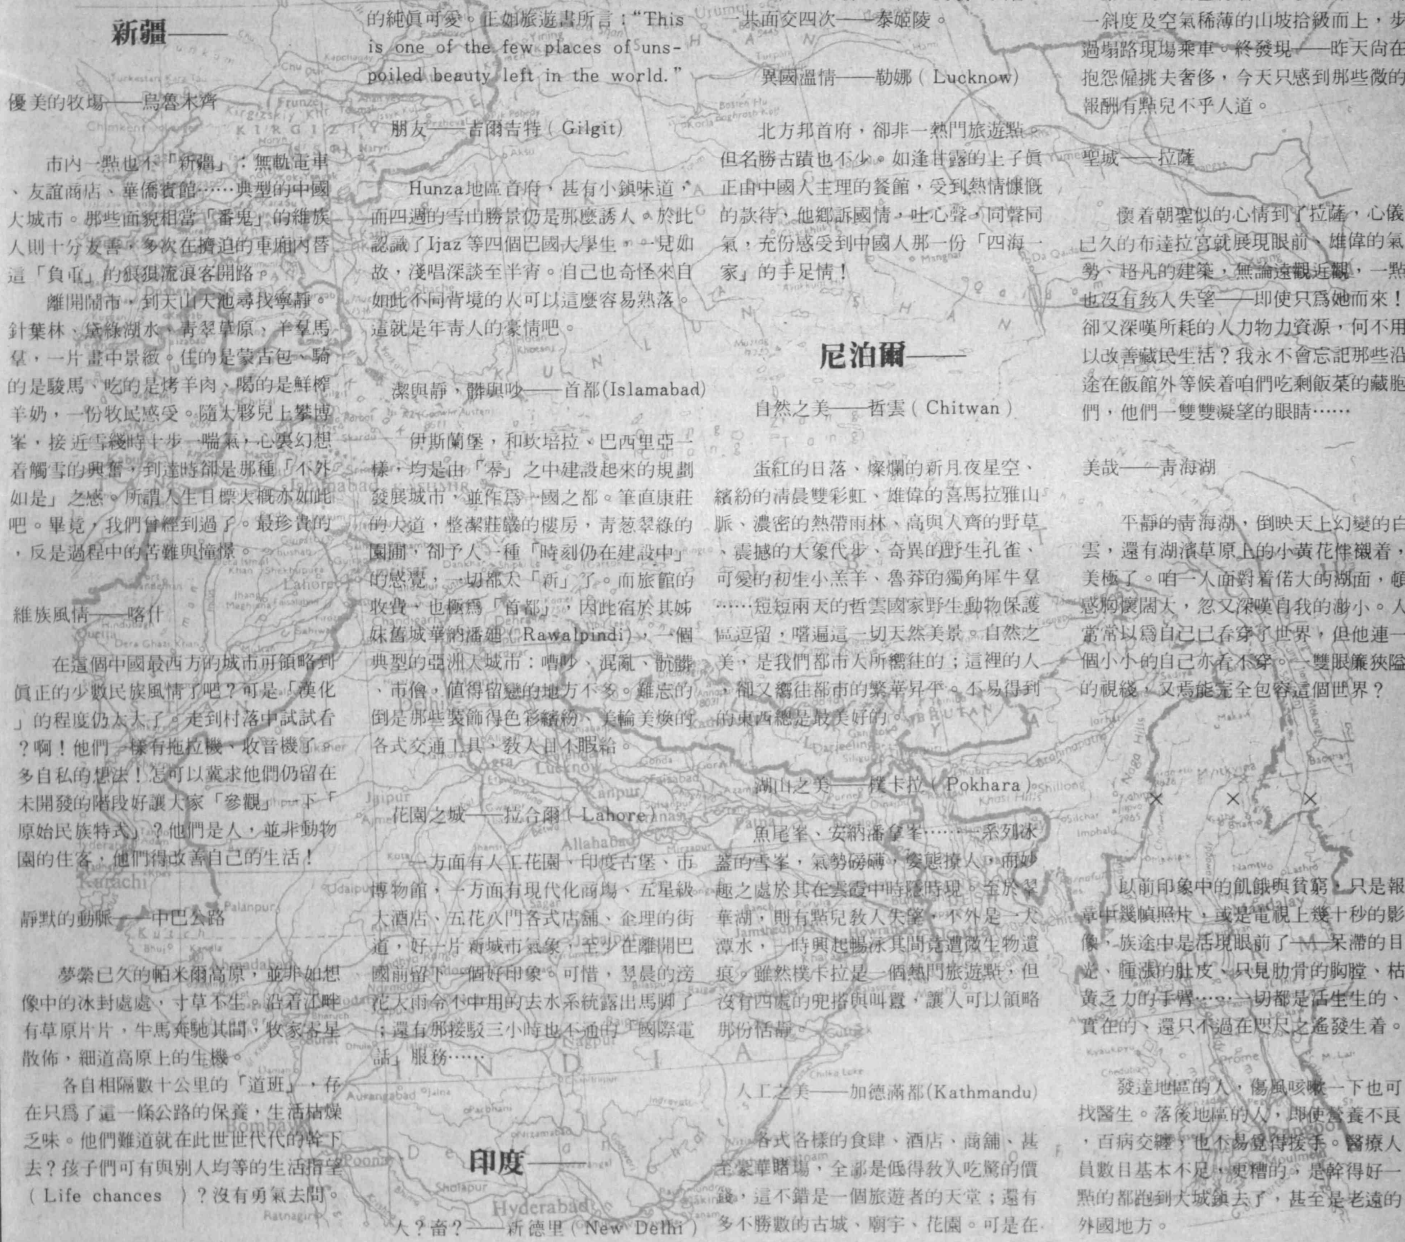 新疆——
優美的牧場——烏魯木齊
市內一點也不「新疆」：無軌電車
、友誼商店、華僑賓館……典型的中國
大城市。那些面貌相當「番鬼」的維族
人則十分友善，多次在擠迫的車廂內替
這「負重」的狼狽流浪客開路。
離開鬧市，到天山天池尋找寧靜。
針葉林、黛綠湖水、青翠草原、羊羣馬
羣，一片畫中景緻。住的是蒙古包、騎
的是駿馬、吃的是烤羊肉、喝的是鮮榨
羊奶，一份牧民感受。隨大夥兒上攀博
峯，接近雪綫時十步一喘氣，心裏幻想
着觸雪的興奮，到達時卻是那種「不外
如是」之感。所謂人生目標大概亦如此
吧。畢竟，我們曾經到過了。最珍貴的
，反是過程中的苦難與憧憬。
維族風情——喀什
在這個中國最西方的城市可領略到
眞正的少數民族風情了吧？可是「漢化
」的程度仍太大了。走到村落中試試看
？啊！他們一樣有拖拉機、收音機了——
多自私的想法！怎可以冀求他們仍留在
未開發的階段好讓大家「參觀」一下「
原始民族特式」？他們是人，並非動物
園的住客，他們得改善自己的生活！
靜默的動脈——中巴公路
夢縈已久的帕米爾高原，並非如想
像中的冰封處處，寸草不生。沿着江畔
有草原片片，牛馬奔馳其間，牧家零星
散佈，細道高原上的生機。
各自相隔數十公里的「道班」，存
在只爲了這一條公路的保養，生活枯燥
乏味。他們難道就在此世世代代的幹下
去？孩子們可有與別人均等的生活指望
（Life chances ）？沒有勇氣去問。
的純眞可愛。正如旅遊書所言："This
is one of the few places of uns-
poiled beauty left in the world."
朋友——吉爾吉特（Gilgit）
Hunza地區首府，甚有小鎮味道，
而四週的雪山勝景仍是那麼誘人。於此
認識了Ijaz等四個巴國大學生，一見如
故，淺唱深談至半宵。自己也奇怪來自
如此不同背境的人可以這麼容易熟落。
這就是年青人的豪情吧。
潔與靜，髒與吵——首都(Islamabad)
伊斯蘭堡，和坎培拉、巴西里亞一
樣，均是由「零」之中建設起來的規劃
發展城市，並作爲一國之都。筆直康莊
的大道，整潔莊嚴的樓房，青葱翠綠的
園圃，卻予人一種「時刻仍在建設中」
的感覺，一切都太「新」了。而旅館的
收費，也極爲「首都」，因此宿於其姊
妹舊城華納潘廸（Rawalpindi），一個
典型的亞洲大城市：嘈吵、混亂、骯髒
、市儈，值得留戀的地方不多。難忘的
倒是那些裝飾得色彩繽紛、美輪美煥的
各式交通工具，敎人目不暇給。
花園之城——拉合爾（Lahore）
一方面有人工花園、印度古堡、市
博物館，一方面有現代化商場、五星級
大酒店、五花八門各式店舖、企理的街
道，好一片新城市氣象，至少在離開巴
國前留下一個好印象。可惜，翌晨的滂
沱大雨令不中用的去水系統露出馬脚了
；還有那接駁三小時也不通的「國際電
話」服務……
印度——
人？畜？——新德里（New Delhi）
一共面交四次——泰姬陵。
異國溫情——勒娜（Lucknow）
北方邦首府，卻非一熱門旅遊點，
但名勝古蹟也不少。如逢甘露的上子眞
正由中國人主理的餐館，受到熱情慷慨
的款待，他鄉訴國情，吐心聲，同聲同
氣，充份感受到中國人那一份「四海一
家」的手足情！
尼泊爾——
自然之美——哲雲（Chitwan）
蛋紅的日落、燦爛的新月夜星空、
繽紛的清晨雙彩虹、雄偉的喜馬拉雅山
脈、濃密的熱帶雨林、高與人齊的野草
、震撼的大象代步、奇異的野生孔雀、
可愛的初生小羔羊、魯莽的獨角犀牛羣
……短短兩天的哲雲國家野生動物保護
區逗留，嚐遍這一切天然美景。自然之
美，是我們都市人所嚮往的；這裡的人
，卻又嚮往都市的繁華昇平。不易得到
的東西總是最美好的。
湖山之美——樸卡拉（Pokhara）
魚尾峯、安納潘拿峯………一系列冰
蓋的雪峯，氣勢磅礴，姿態撩人，而妙
趣之處於其在雲霞中時隱時現。至於翠
華湖，則有點兒敎人失望，不外是一大
潭水，一時興起暢泳其間竟遭微生物遺
痕。雖然樸卡拉是一個熱門旅遊點，但
沒有四處的兜搭與叫囂，讓人可以領略
那份恬靜。
人工之美——加德滿都(Kathmandu)
各式各樣的食肆、酒店、商舖、甚
至豪華賭場，全部是低得敎人吃驚的價
錢，這不錯是一個旅遊者的天堂；還有
多不勝數的古城、廟宇、花園。可是在
一斜度及空氣稀薄的山坡拾級而上，步
過塌路現場乘車。終發現——昨天尚在
抱怨僱挑夫奢侈，今天只感到那些微的
報酬有點兒不乎人道。
聖城——拉薩
懷着朝聖似的心情到了拉薩，心儀
已久的布達拉宮就展現眼前，雄偉的氣
勢、超凡的建築，無論遠觀近觀，一點
也沒有敎人失望——即使只爲她而來！
卻又深嘆所耗的人力物力資源，何不用
以改善藏民生活？我永不會忘記那些沿
途在飯館外等候着咱們吃剩飯菜的藏胞
們，他們一雙雙凝望的眼睛……
美哉——青海湖
平靜的青海湖，倒映天上幻變的白
雲，還有湖濱草原上的小黃花伴襯着，
美極了。咱一人面對着偌大的湖面，頓
感胸懷闊大，忽又深嘆自我的渺小。人
常常以爲自己已看穿了世界，但他連一
個小小的自己亦看不穿。一雙眼簾狹隘
的視綫，又焉能完全包容這個世界？
× × ×
以前印象中的飢餓與貧窮，只是報
章中幾幀照片，或是電視上幾十秒的影
像，族途中是活現眼前了——呆滯的目
光、腫漲的肚皮、只見肋骨的胸膛、枯
黃乏力的手臂……一切都是活生生的、
實在的、還只不過在咫尺之遙發生着。
發達地區的人，傷風咳嗽一下也可
找醫生。落後地區的人，即使營養不良
，百病交纏，也不易覓得援手。醫療人
員數目基本不足，更糟的，是幹得好一
點的都跑到大城鎮去了，甚至是老遠的
外國地方。